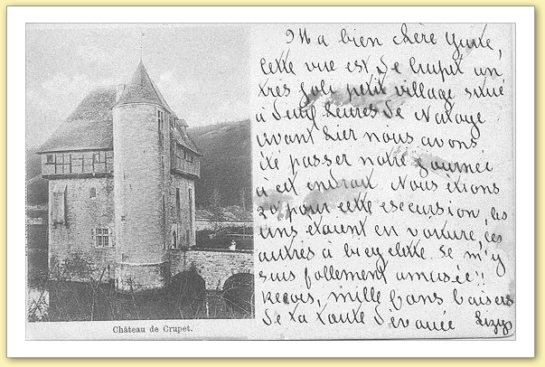 Ma bien chère Yvette,
Cette vue est de Crupet un
très joli petit village situé
à deux heures de Natoye
avant hier nous avons
été passer notre journée
à cet endroit Nous étions
20 pour cette escursion, les
uns étaient en voiture, les
autres à bicyclette. Je m'y
suis follement amusée!!
Reçois, mille bons baisers
de ta tante dévouée
Château de Crupet.